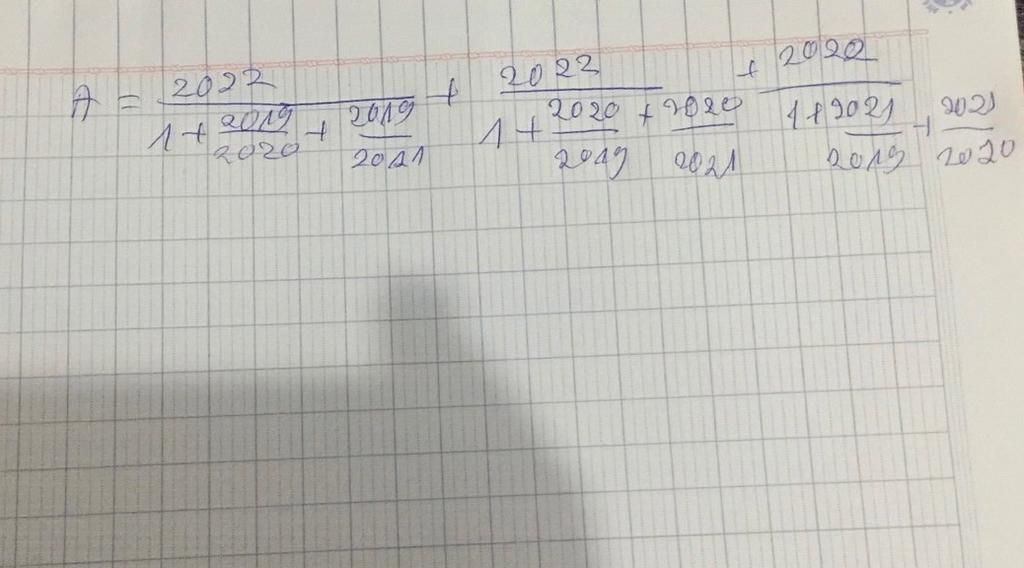 A = 2022 / (1 + 2019/2020 + 2019/2021) + 2022 / (1 + 2020/2019 + 2020/2021) + 2022 / (1 + 2021/2019 + 2021/2020)